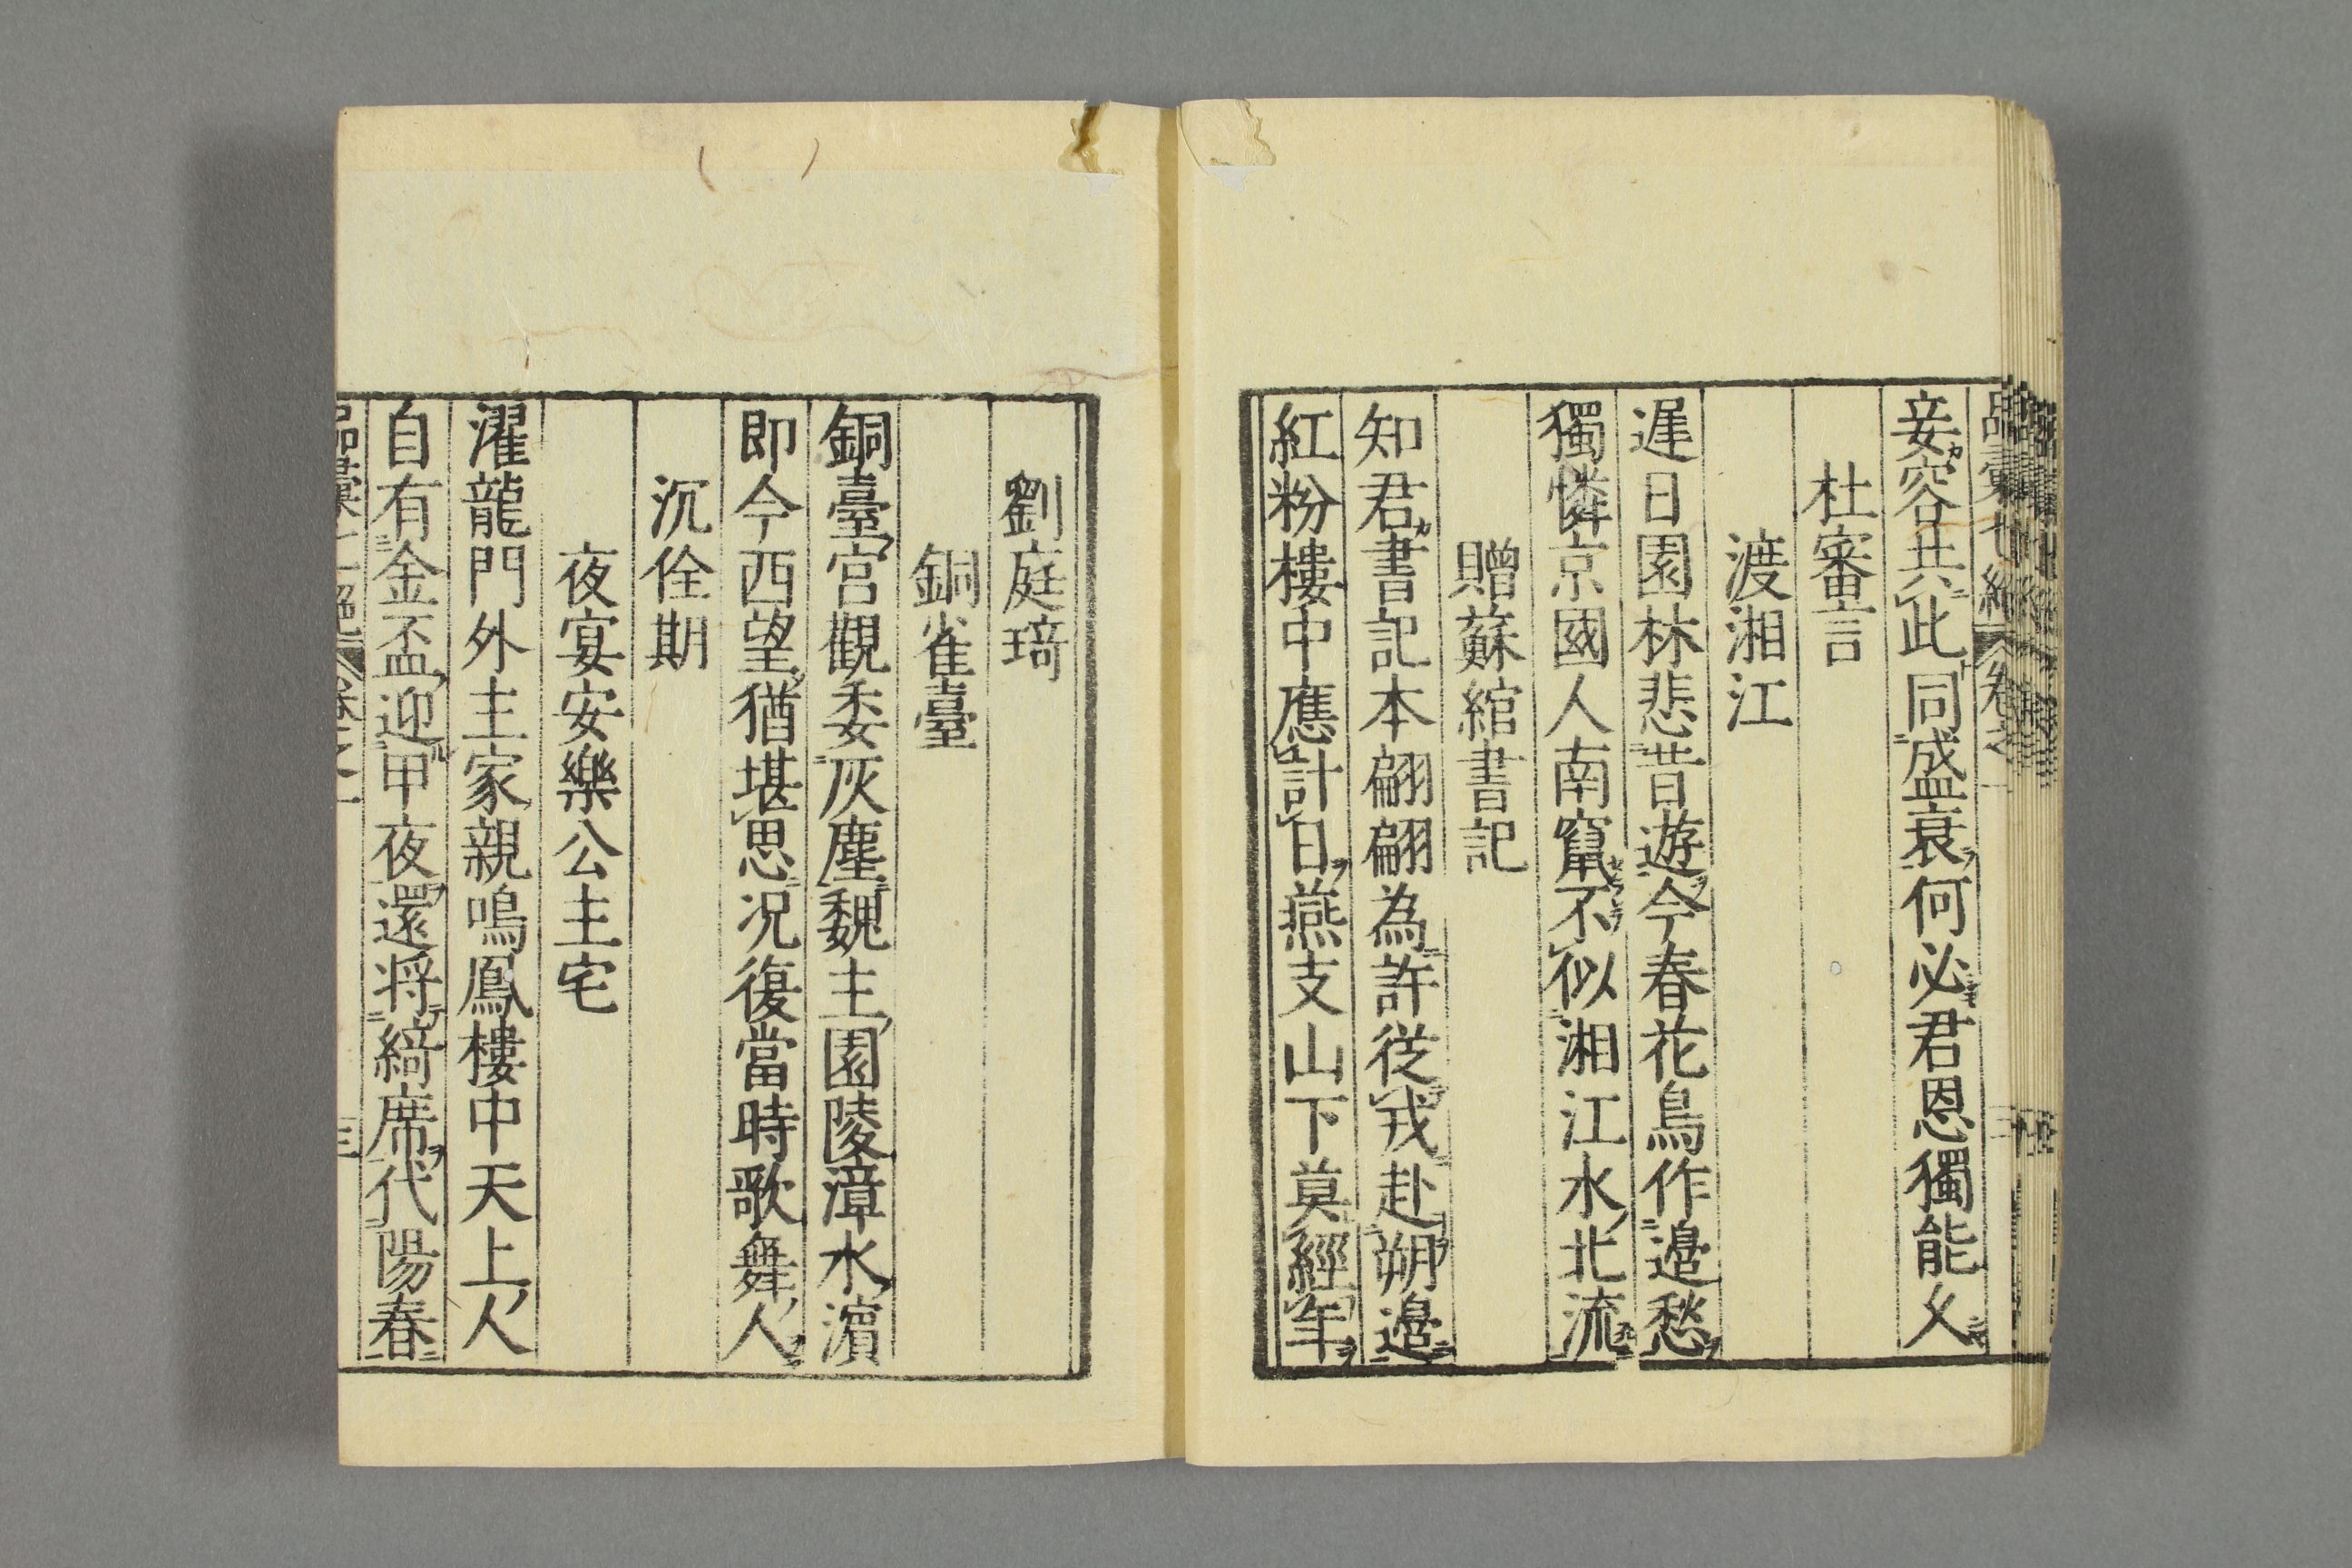 品彙七絶 卷之一
妾容共此同盛衰何必君恩獨能乆
杜審言
渡湘江
遲日園林悲昔遊今春花鳥作邉愁
獨憐京國人南竄不似湘江水北流
贈蘇綰書記
知君書記本翩翩為許從戎赴朔邉
紅粉樓中應計日燕支山下莫經年
劉庭琦
銅雀臺
銅臺宫觀委灰塵魏主園陵漳水濵
即今西望猶堪思况復當時歌舞人
沉佺期
夜宴安樂公主宅
濯龍門外主家親鳴鳳樓中天上人
自有金盃迎甲夜還將綺席代陽春
品彙七絶 卷之一 三